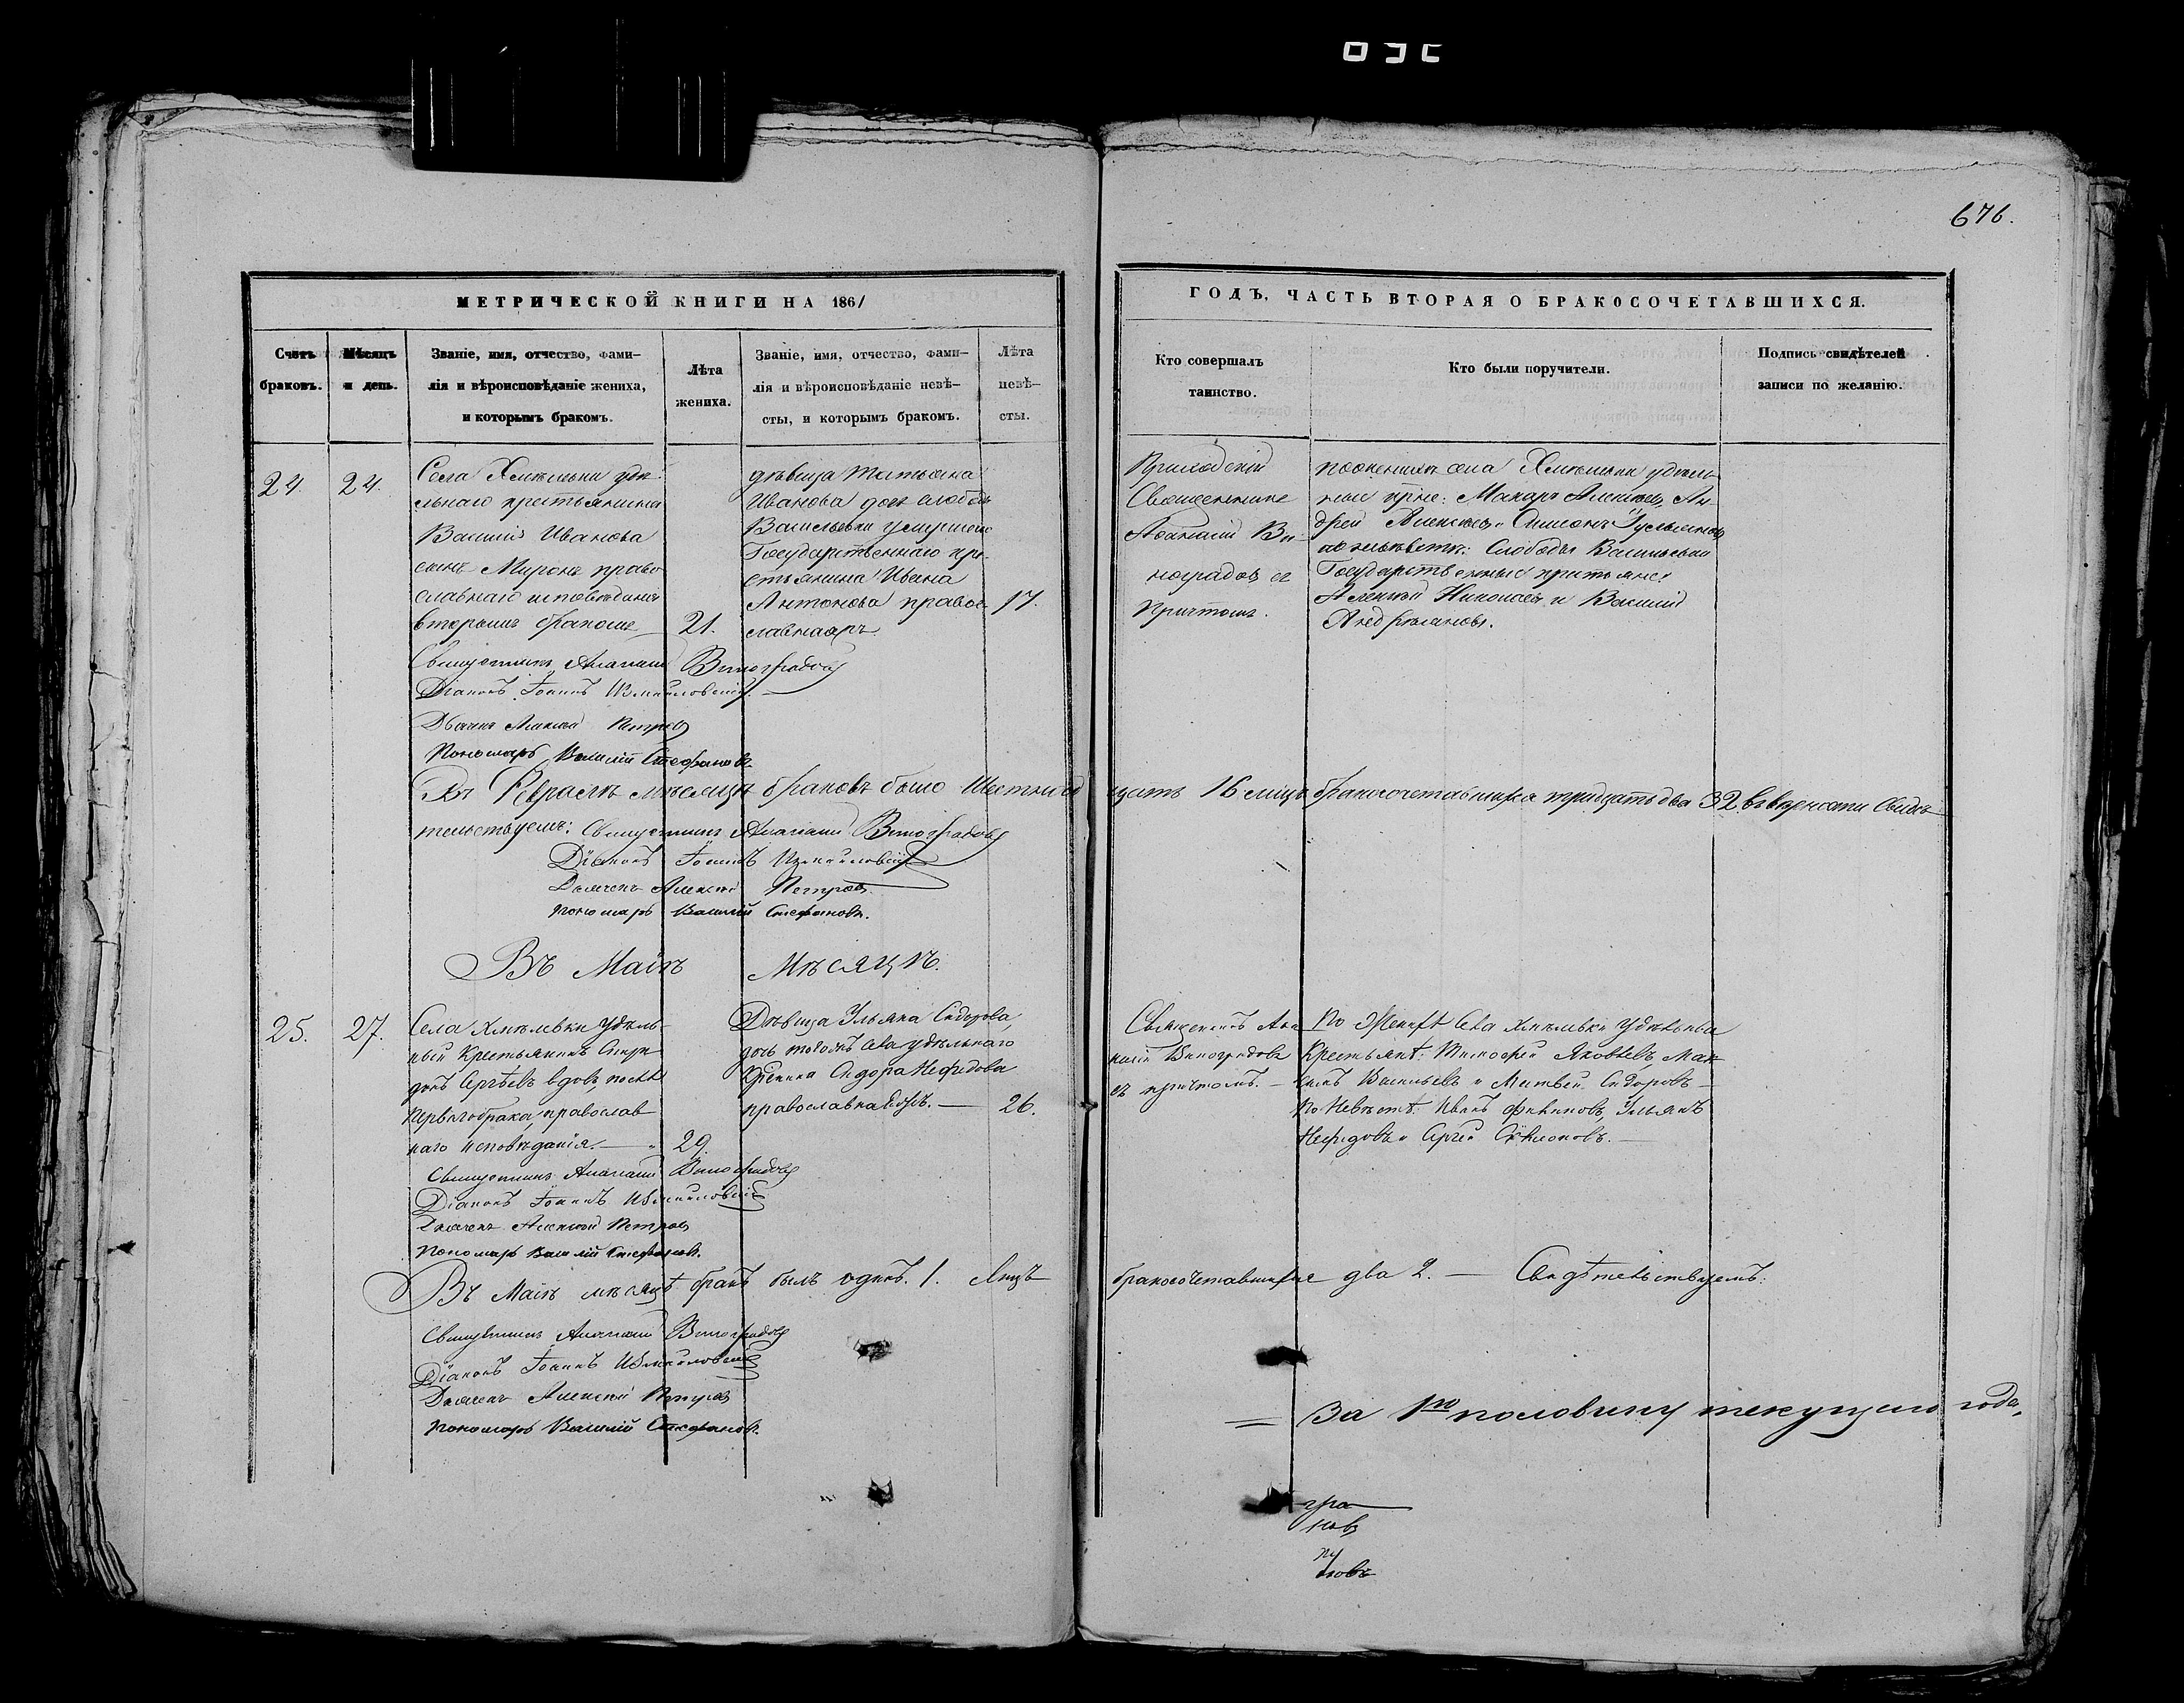 676.
МЕТРИЧЕСКОЙ КНИГИ НА 1861
ГОДЪ, ЧАСТЬ ВТОРАЯ О БРАКОСОЧЕТАВШИХСЯ.
Счетъ браковъ.
Мѣсяцъ и день.
Званіе, имя, отчество, фами-
лія и вѣроисповѣданіе жениха,
и которымъ бракомъ.
Лѣта
жениха.
Званіе, имя, отчество, фами-
лія и вѣроисповѣданіе невѣ-
сты, и которымъ бракомъ.
Лѣта
невѣ-
сты.
Кто совершалъ
таинство.
Кто были поручители.
Подпись свидѣтелей
записи по желанію.
24.
24.
Села Хмѣльвки удѣ-
льнаго крестьянина
Василія Иванова
сынъ Миронъ право
славнаго исповѣданія
вторымъ бракомъ
21.
дѣвица Татьяна
Иванова дочь слободы
Васильевки умершаго
Государственнаго кре-
стьянина Ивана
Антонова правос-
лавнаго
17.
Приходскій
Священникъ
Афанасій Ви-
ноградовъ съ
Причтомъ.
по женихѣ села Хмѣльвки удѣль-
ные крне: Макаръ Алексѣевъ, Ан-
дрей Алексѣевъ и Симеонъ
по невѣстѣ: Слободы Васильевки
Государственные крестьяне
Алексѣй Николаевъ и Василій
Андреяновъ.
Священникъ Афанасій Виноградовъ
Діаконъ Іоаннъ Измайловскій.
Дьячекъ Алексѣй Петровъ
Пономарь Василій Стефановъ.
Въ Февралѣ мѣсяцѣ браковъ было Шестнад
цать 16 лицъ бракосочетавшихся тридцать два 32 Свидѣ-
тельствуемъ: Священникъ Афанасій Виноградовъ
Діаконъ Іоаннъ Измайловскій
Дьячекъ Алексѣй Петровъ.
Пономарь Василій Стефановъ.
Въ Маіѣ Мѣсяцѣ.
25.
27.
Села Хмѣльвки Удѣль-
ный Крестьянинъ Спири-
донъ Сергѣевъ вдовъ, послѣ
перваго брака, православ
наго исповѣданія.
29.
Дѣвица Ульяна Сидорова,
дочь тогожъ села удѣльнаго
Крестьянина Сидора Нефедова
православнаго —
26.
Священникъ Афа
насій Виноградовъ
съ причтомъ. —
По Женихѣ Села Хмѣльвки Удѣльные
Крестьянѣ: Тимофей Яковлевъ, Мак-
симъ Васильевъ и Матвей Сидоровъ —
По Невѣстѣ: Иванъ Ульянъ
Нефедовъ и Сергѣй —
Священникъ Афанасій Виноградовъ
Діаконъ Іоаннъ Измайловскій
Дьячекъ Алексѣй Петровъ
Пономарь Василій Стефановъ.
Въ Маіѣ мѣсяцѣ бракъ былъ одинъ. 1. Лицъ
бракосочетавшихся два 2. — Свидѣтельствуемъ:
Священникъ Афанасій Виноградовъ
Діаконъ Іоаннъ Измайловскій
Дьячекъ Алексѣй Петровъ
Пономарь Василій Стефановъ.
= За 1ю половину текущаго года,